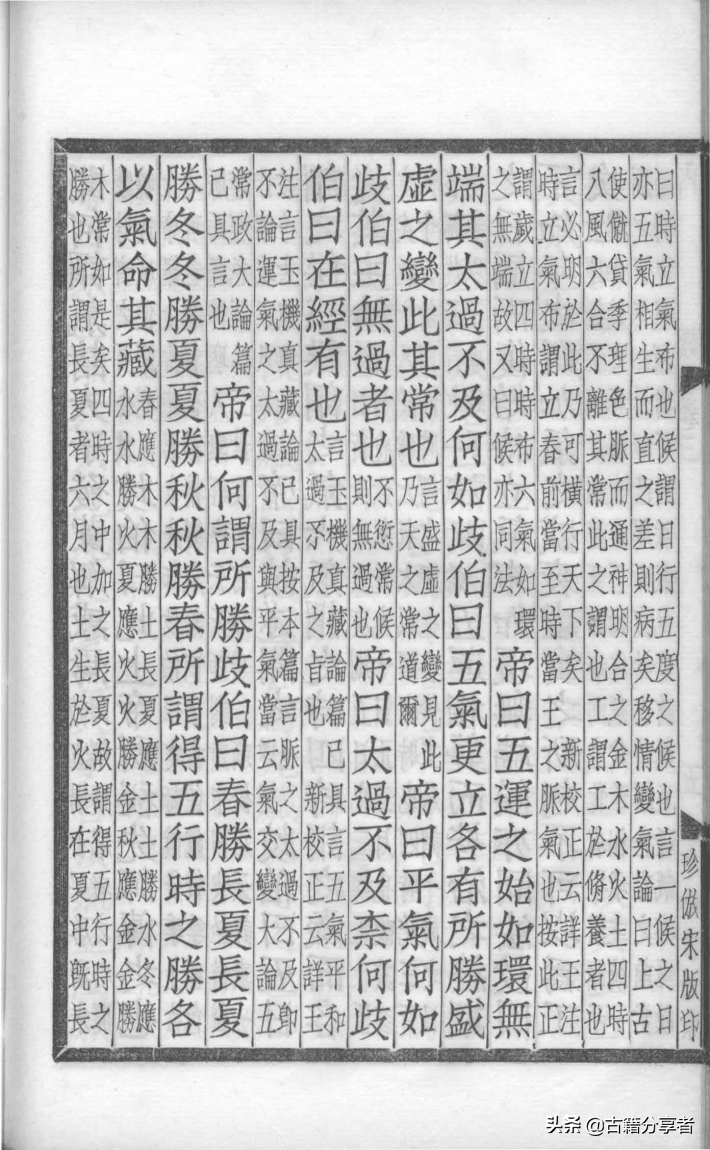 珍倣宋版印
曰時立氣布也候謂日行五度之候也言一候之日
亦五氣相生而直之差則病矣移情變氣論曰上古
使僦貸季理色脈而通神明合之金木水火土四時
八風六合不離其常此之謂也工謂工於脩養者也
言必明於此乃可橫行天下矣新校正云詳王注
時立氣布謂立春前當至時當王之脈氣也按此正
謂歲立四時時布六氣如環
之無端故又曰候亦同法
帝曰五運之始如環無
端其太過不及何如歧伯曰五氣更立各有所勝盛
虛之變此其常也
言盛虛之變見此
乃天之常道爾
帝曰平氣何如
歧伯曰無過者也
不愆常候
則無過也
帝曰太過不及柰何歧
伯曰在經有也
言玉機真藏論篇已具言五氣平和
太過不及之旨也新校正云詳王
注言玉機真藏論已具按本篇言脈之太過不及卽
不論運氣之太過不及與平氣當云氣交變大論五
常政大論篇
已具言也
帝曰何謂所勝歧伯曰春勝長夏長夏
勝冬冬勝夏夏勝秋秋勝春所謂得五行時之勝各
以氣命其藏
春應木木勝土長夏應土土勝水冬應
水水勝火夏應火火勝金秋應金金勝
木常如是矣四時之中加之長夏故謂得五行時之
勝也所謂長夏者六月也土生於火長在夏中旣長
头条 @古籍分享者